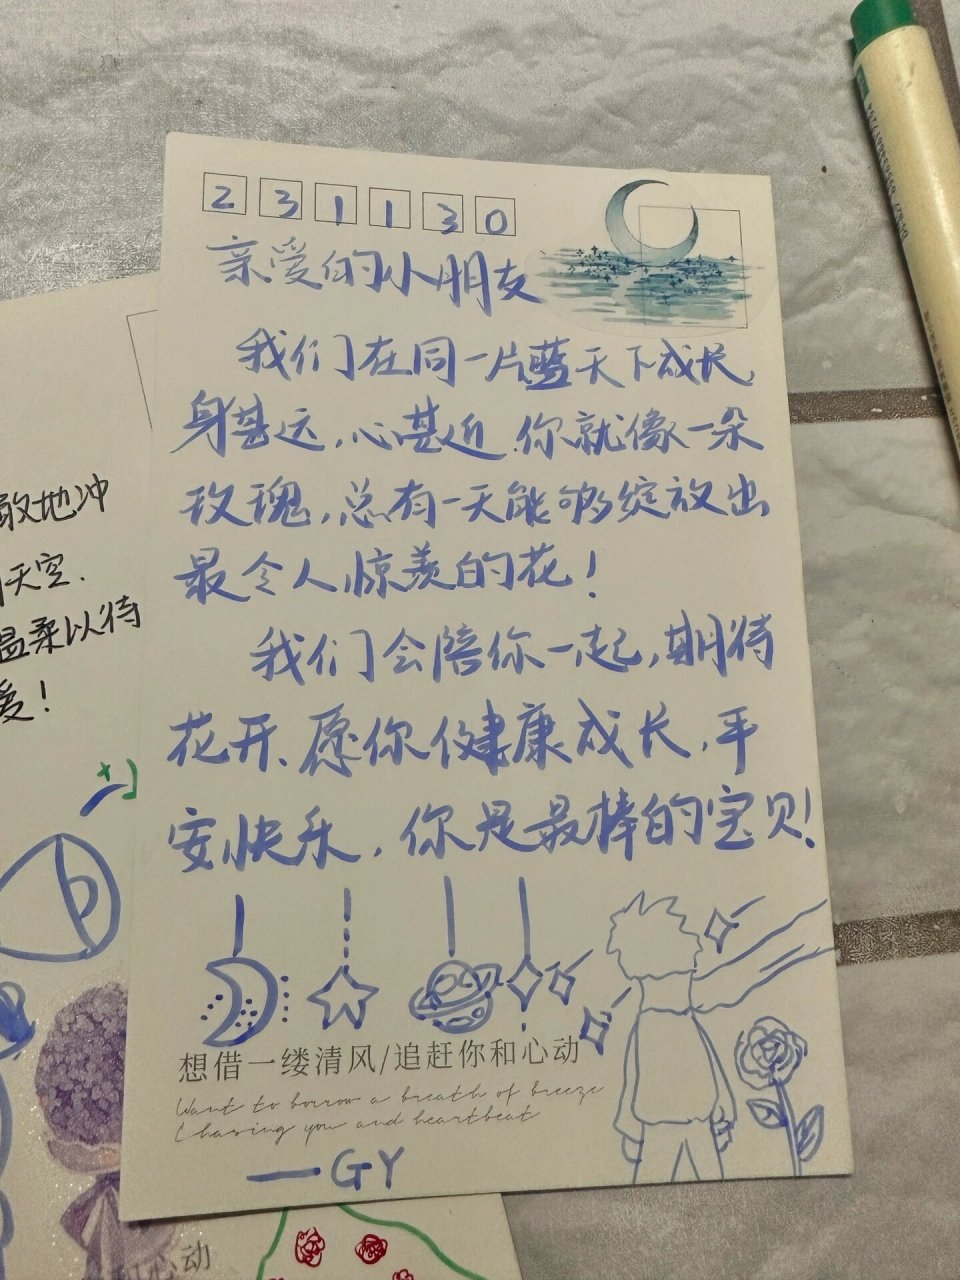 231130
亲爱的小朋友
我们在同一片蓝天下成长,
身甚远,心甚近.你就像一朵
玫瑰,总有一天能够绽放出
最令人惊羡的花!
我们会陪你一起,期待
花开、愿你健康成长,平
安快乐,你是最棒的宝贝!
想借一缕清风/追赶你和心动
Want to borrow a breath of breeze
Chasing you and heartbeat
—GY
敢地冲
天空.
温柔以待
爱!
和心动